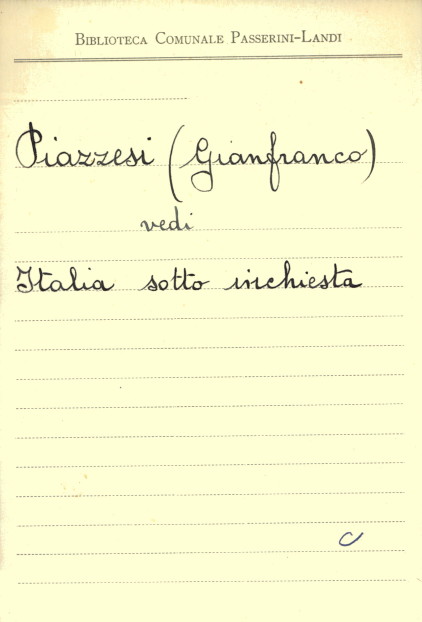 Biblioteca Comunale Passerini-Landi
Piazzesi (Gianfranco)
vedi
Italia sotto inchiesta
C